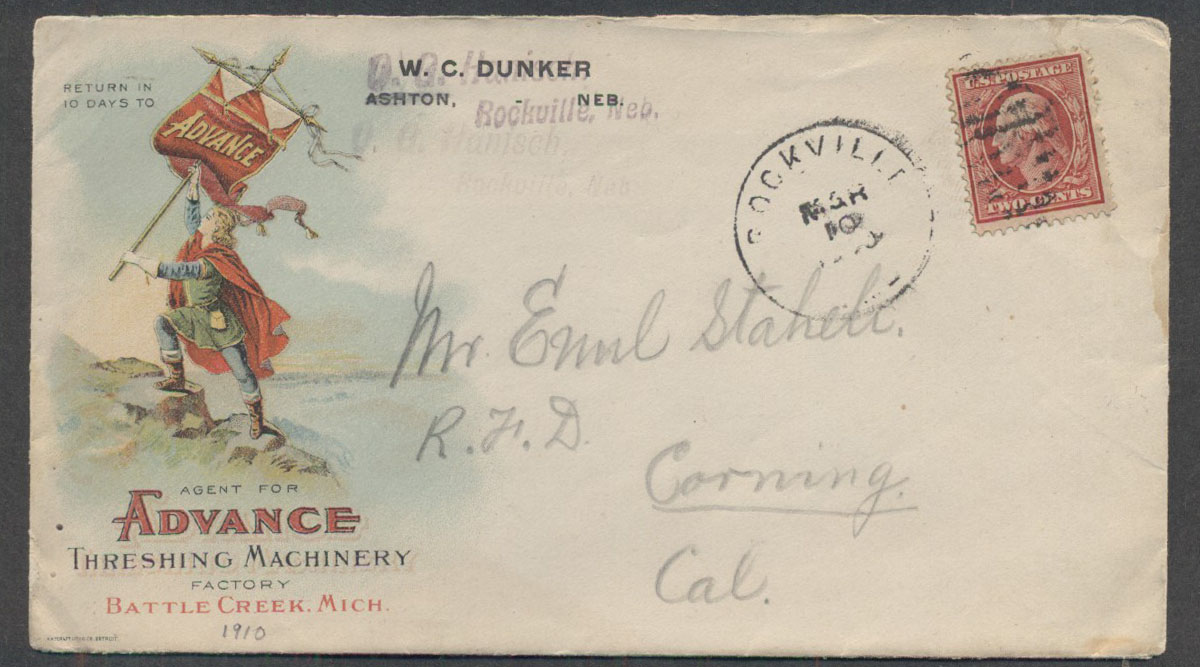 RETURN IN
10 DAYS TO
ADVANCE
W. C. DUNKER
ASHTON, - NEB.
Rockville, Neb.
Rockville, Neb.
ROCKVILL
MAR
10
U.S. POSTAGE
TWO CENTS
Mr. Emil Staheli.
R.F.D.
Corning.
Cal.
AGENT FOR
ADVANCE
THRESHING MACHINERY
FACTORY
BATTLE CREEK, MICH.
1910